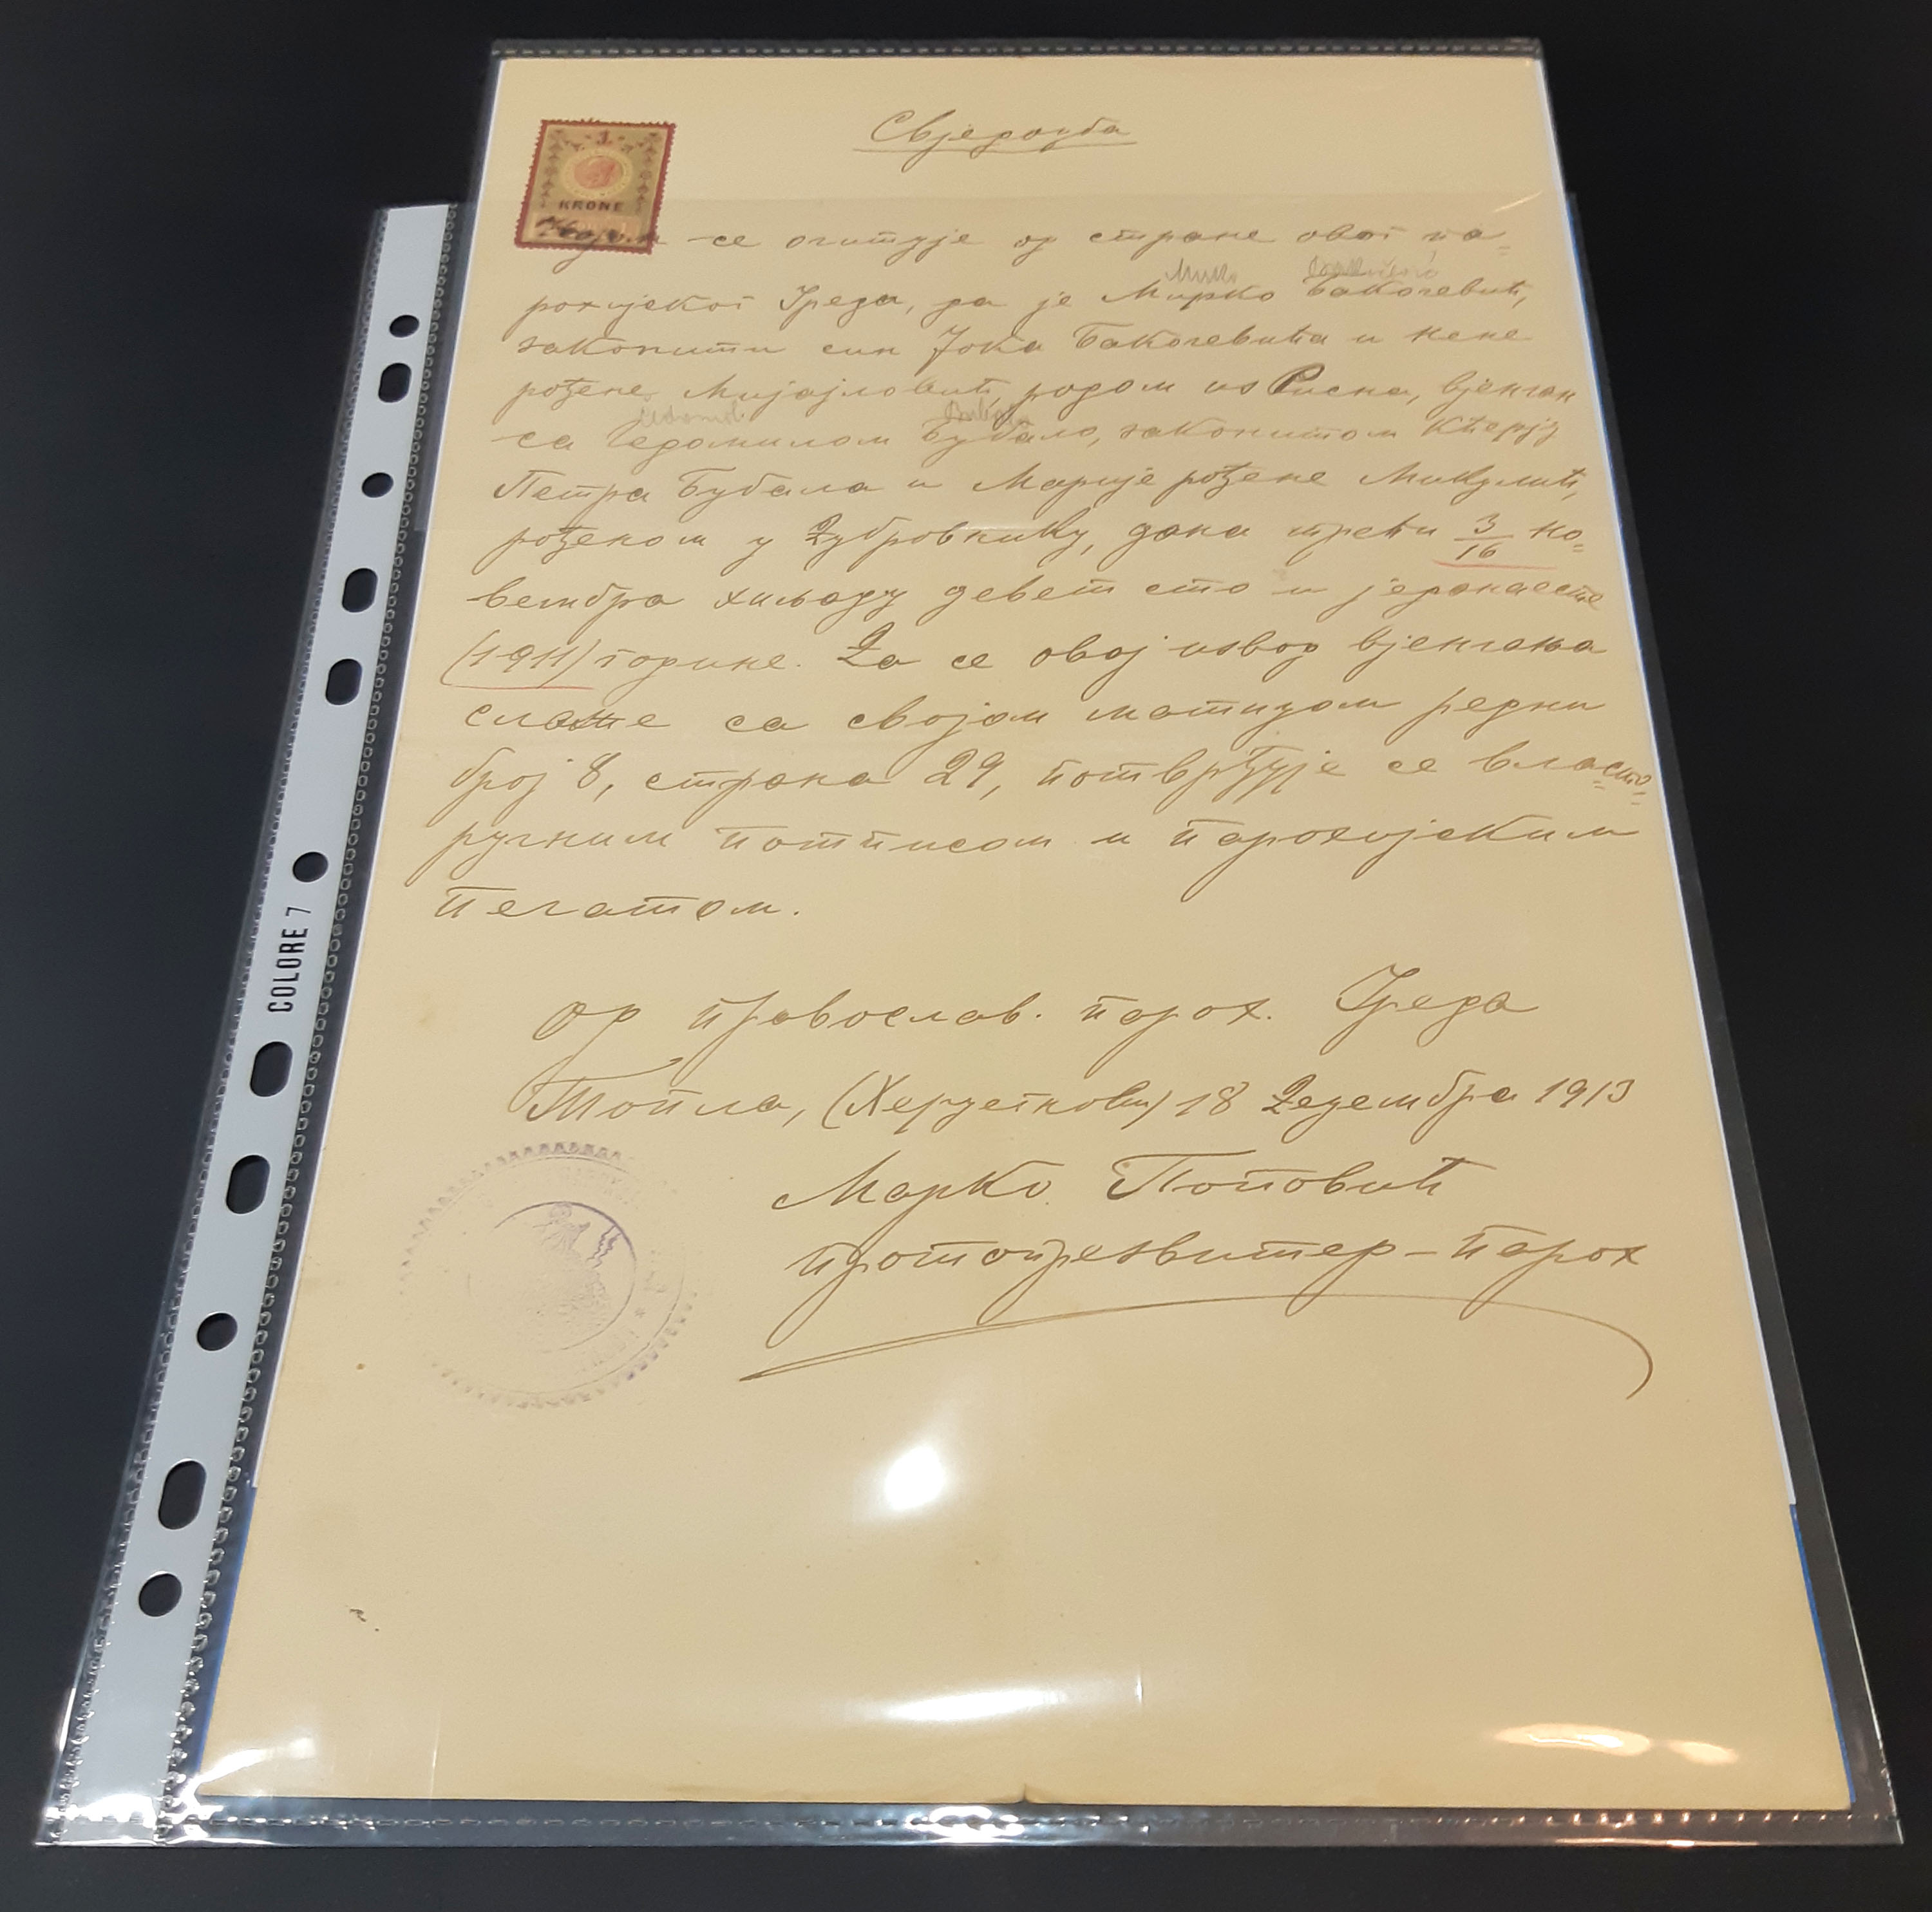 Свједоџба
1
KRONE
Којом се очитује од стране овог па=
рохијског Уреда, да је Мирко Бакочевић,
законити син Јока Бакочевића и Кене
рођене Мијајловић, родом из Рисна, вјенчан
са Чедомилом Бубало, законитом кћерју
Петра Бубала и Марије рођене Микулић,
рођеном у Дубровнику, дана трећи 3/16 но=
вембра хиљаду девет сто и једанаесте
(1911) године. Да се овај извод вјенчања
слаже са својом матицом редни
број 8, страна 29, потврђује се власто=
ручним потписом и парохијским
печатом.
Од православ. парох. Уреда
Топла, (Херцегнови) 18 Децембра 1913
Марко Поповић
протопрезвитер-парох
COLORE 7